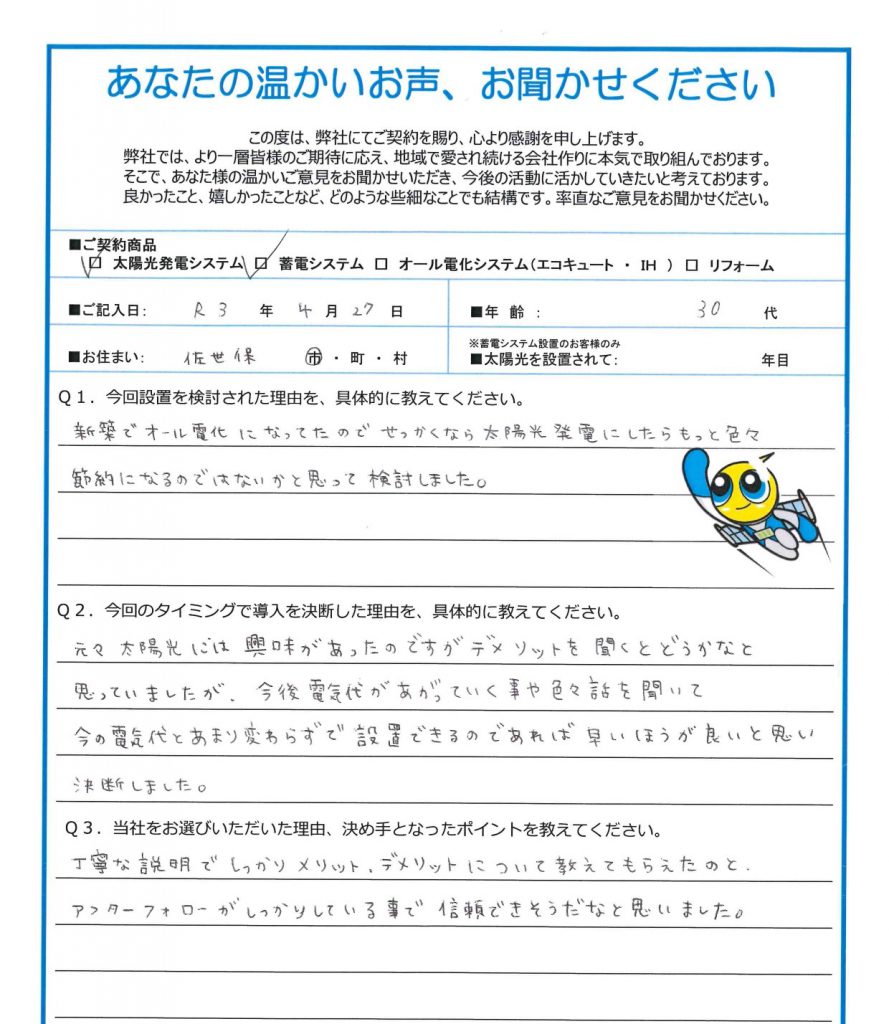 あなたの温かいお声、お聞かせください
この度は、弊社にてご契約を賜り、心より感謝を申し上げます。
弊社では、より一層皆様のご期待に応え、地域で愛され続ける会社作りに本気で取り組んでおります。
そこで、あなた様の温かいご意見をお聞かせいただき、今後の活動に活かしていきたいと考えております。
良かったこと、嬉しかったことなど、どのような些細なことでも結構です。率直なご意見をお聞かせください。
■ご契約商品
☑ 太陽光発電システム ☑ 蓄電システム □ オール電化システム(エコキュート・IH ) □ リフォーム
■ご記入日: R3 年 4 月 27 日 ■年 齢 : 30 代
■お住まい: 佐世保 市・町・村 ※蓄電システム設置のお客様のみ
■太陽光を設置されて: 年目
Q1. 今回設置を検討された理由を、具体的に教えてください。
新築でオール電化になってたのでせっかくなら太陽光発電にしたらもっと色々
節約になるのではないかと思って検討しました。
Q2. 今回のタイミングで導入を決断した理由を、具体的に教えてください。
元々太陽光には興味があったのですがデメリットを聞くとどうかなと
思っていましたが、今後電気代があがっていく事や色々話を聞いて
今の電気代とあまり変わらずで設置できるのであれば早いほうが良いと思い
決断しました。
Q3. 当社をお選びいただいた理由、決め手となったポイントを教えてください。
丁寧な説明でしっかりメリット、デメリットについて教えてもらえたのと、
アフターフォローがしっかりしている事で信頼できそうだなと思いました。